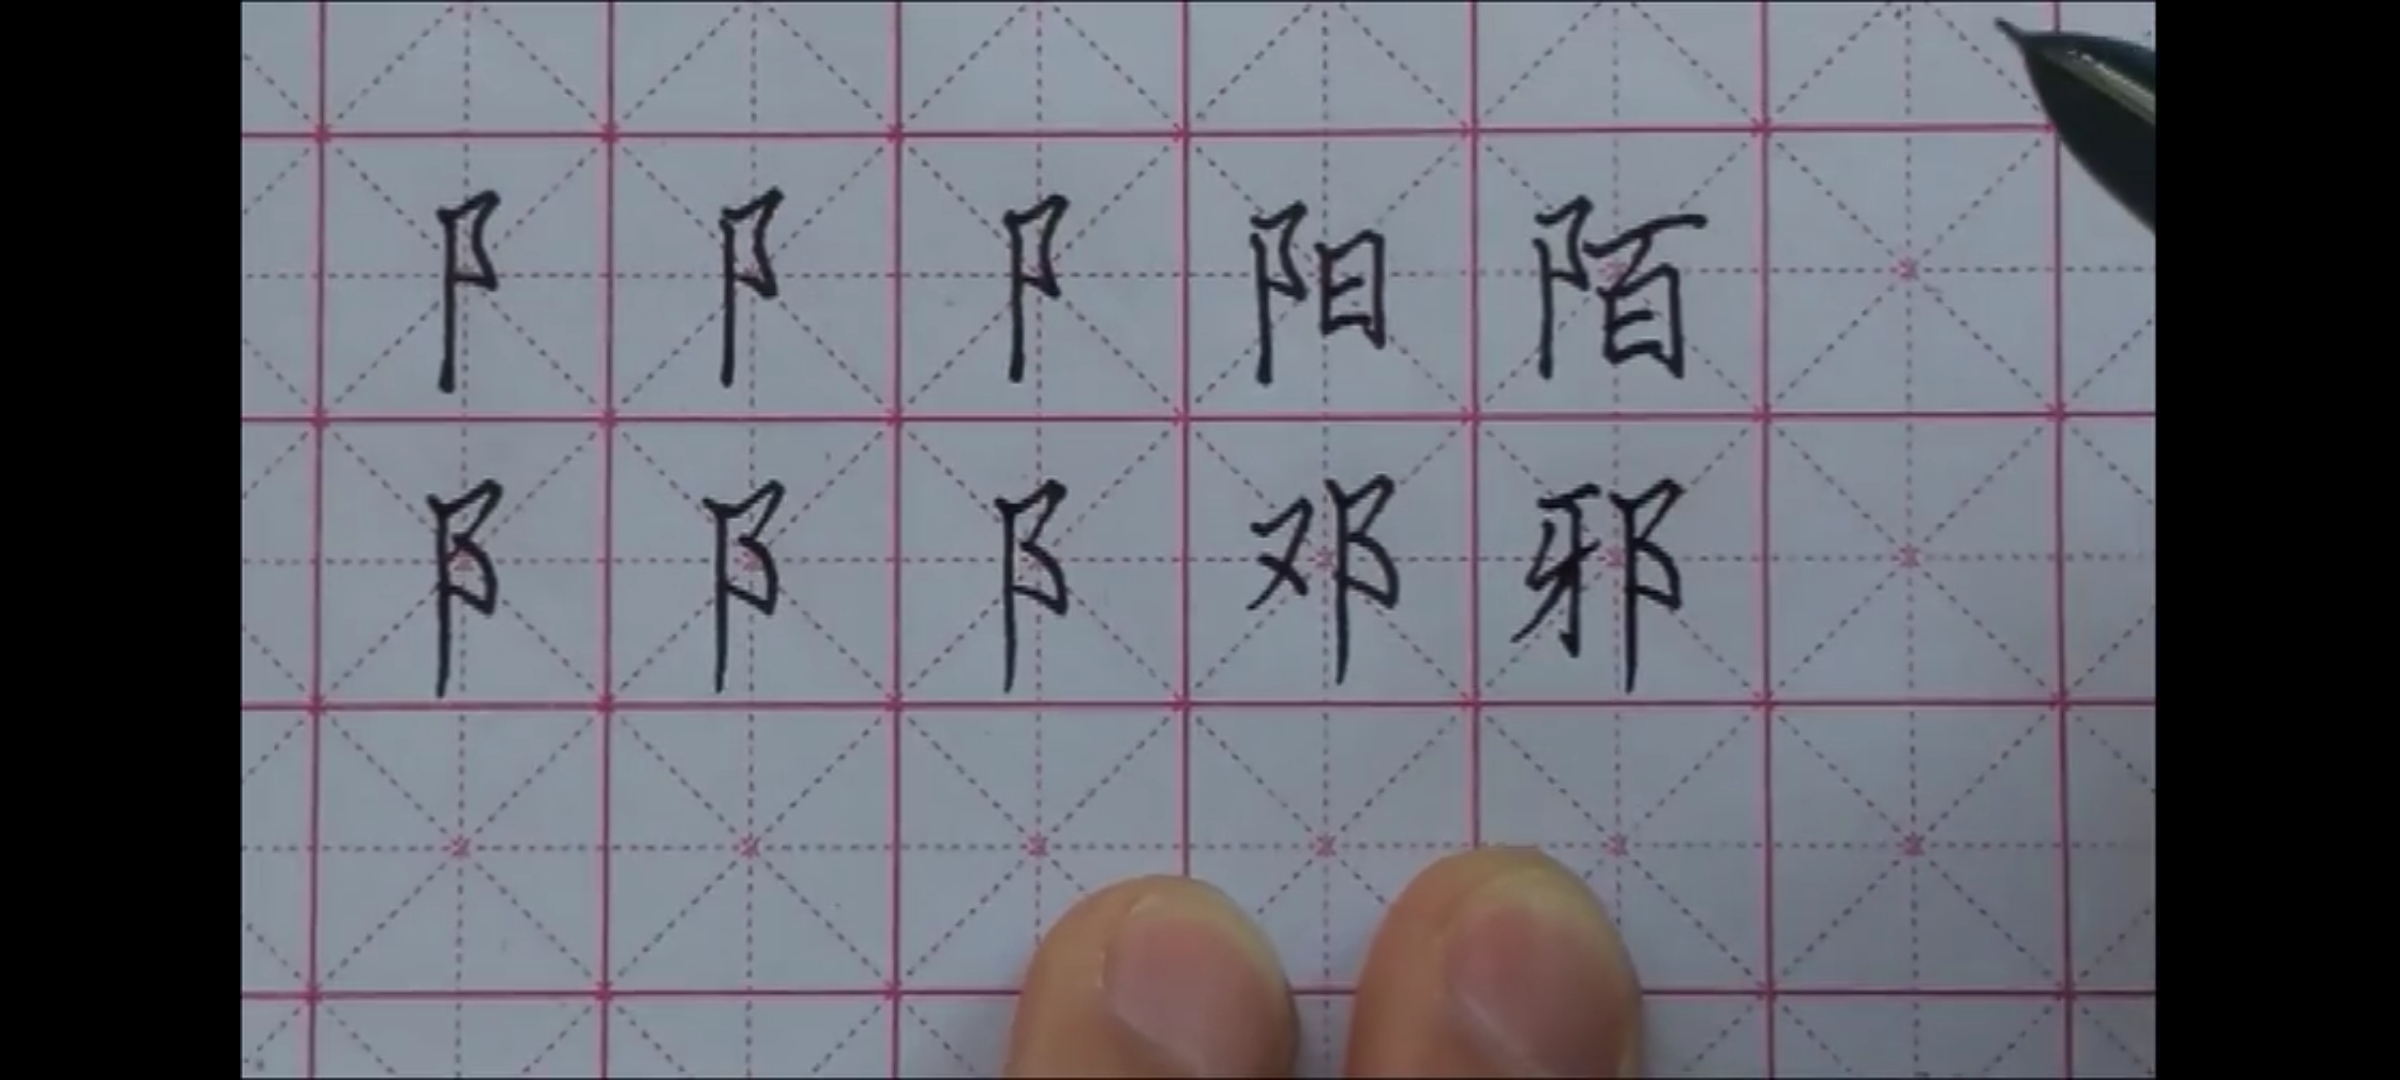 阝阝阝阳陌
阝阝阝邓邪